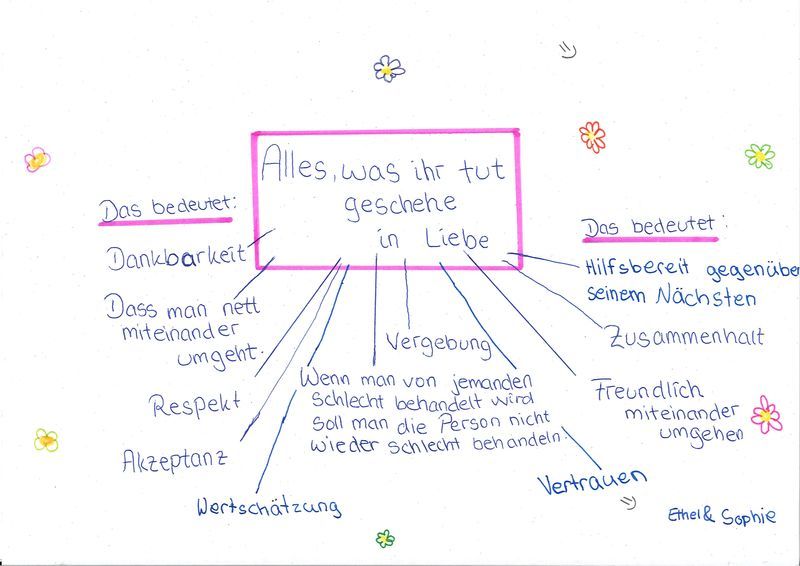 Alles, was ihr tut
geschehe
in Liebe
Das bedeutet:
Dankbarkeit
Dass man nett
miteinander
umgeht.
Respekt
Akzeptanz
Wertschätzung
Vergebung
Wenn man von jemanden
schlecht behandelt wird
soll man die Person nicht
wieder schlecht behandeln.
Vertrauen
Das bedeutet:
Hilfsbereit gegenüber
seinem Nächsten
Zusammenhalt
Freundlich
miteinander
umgehen
Ethel & Sophie